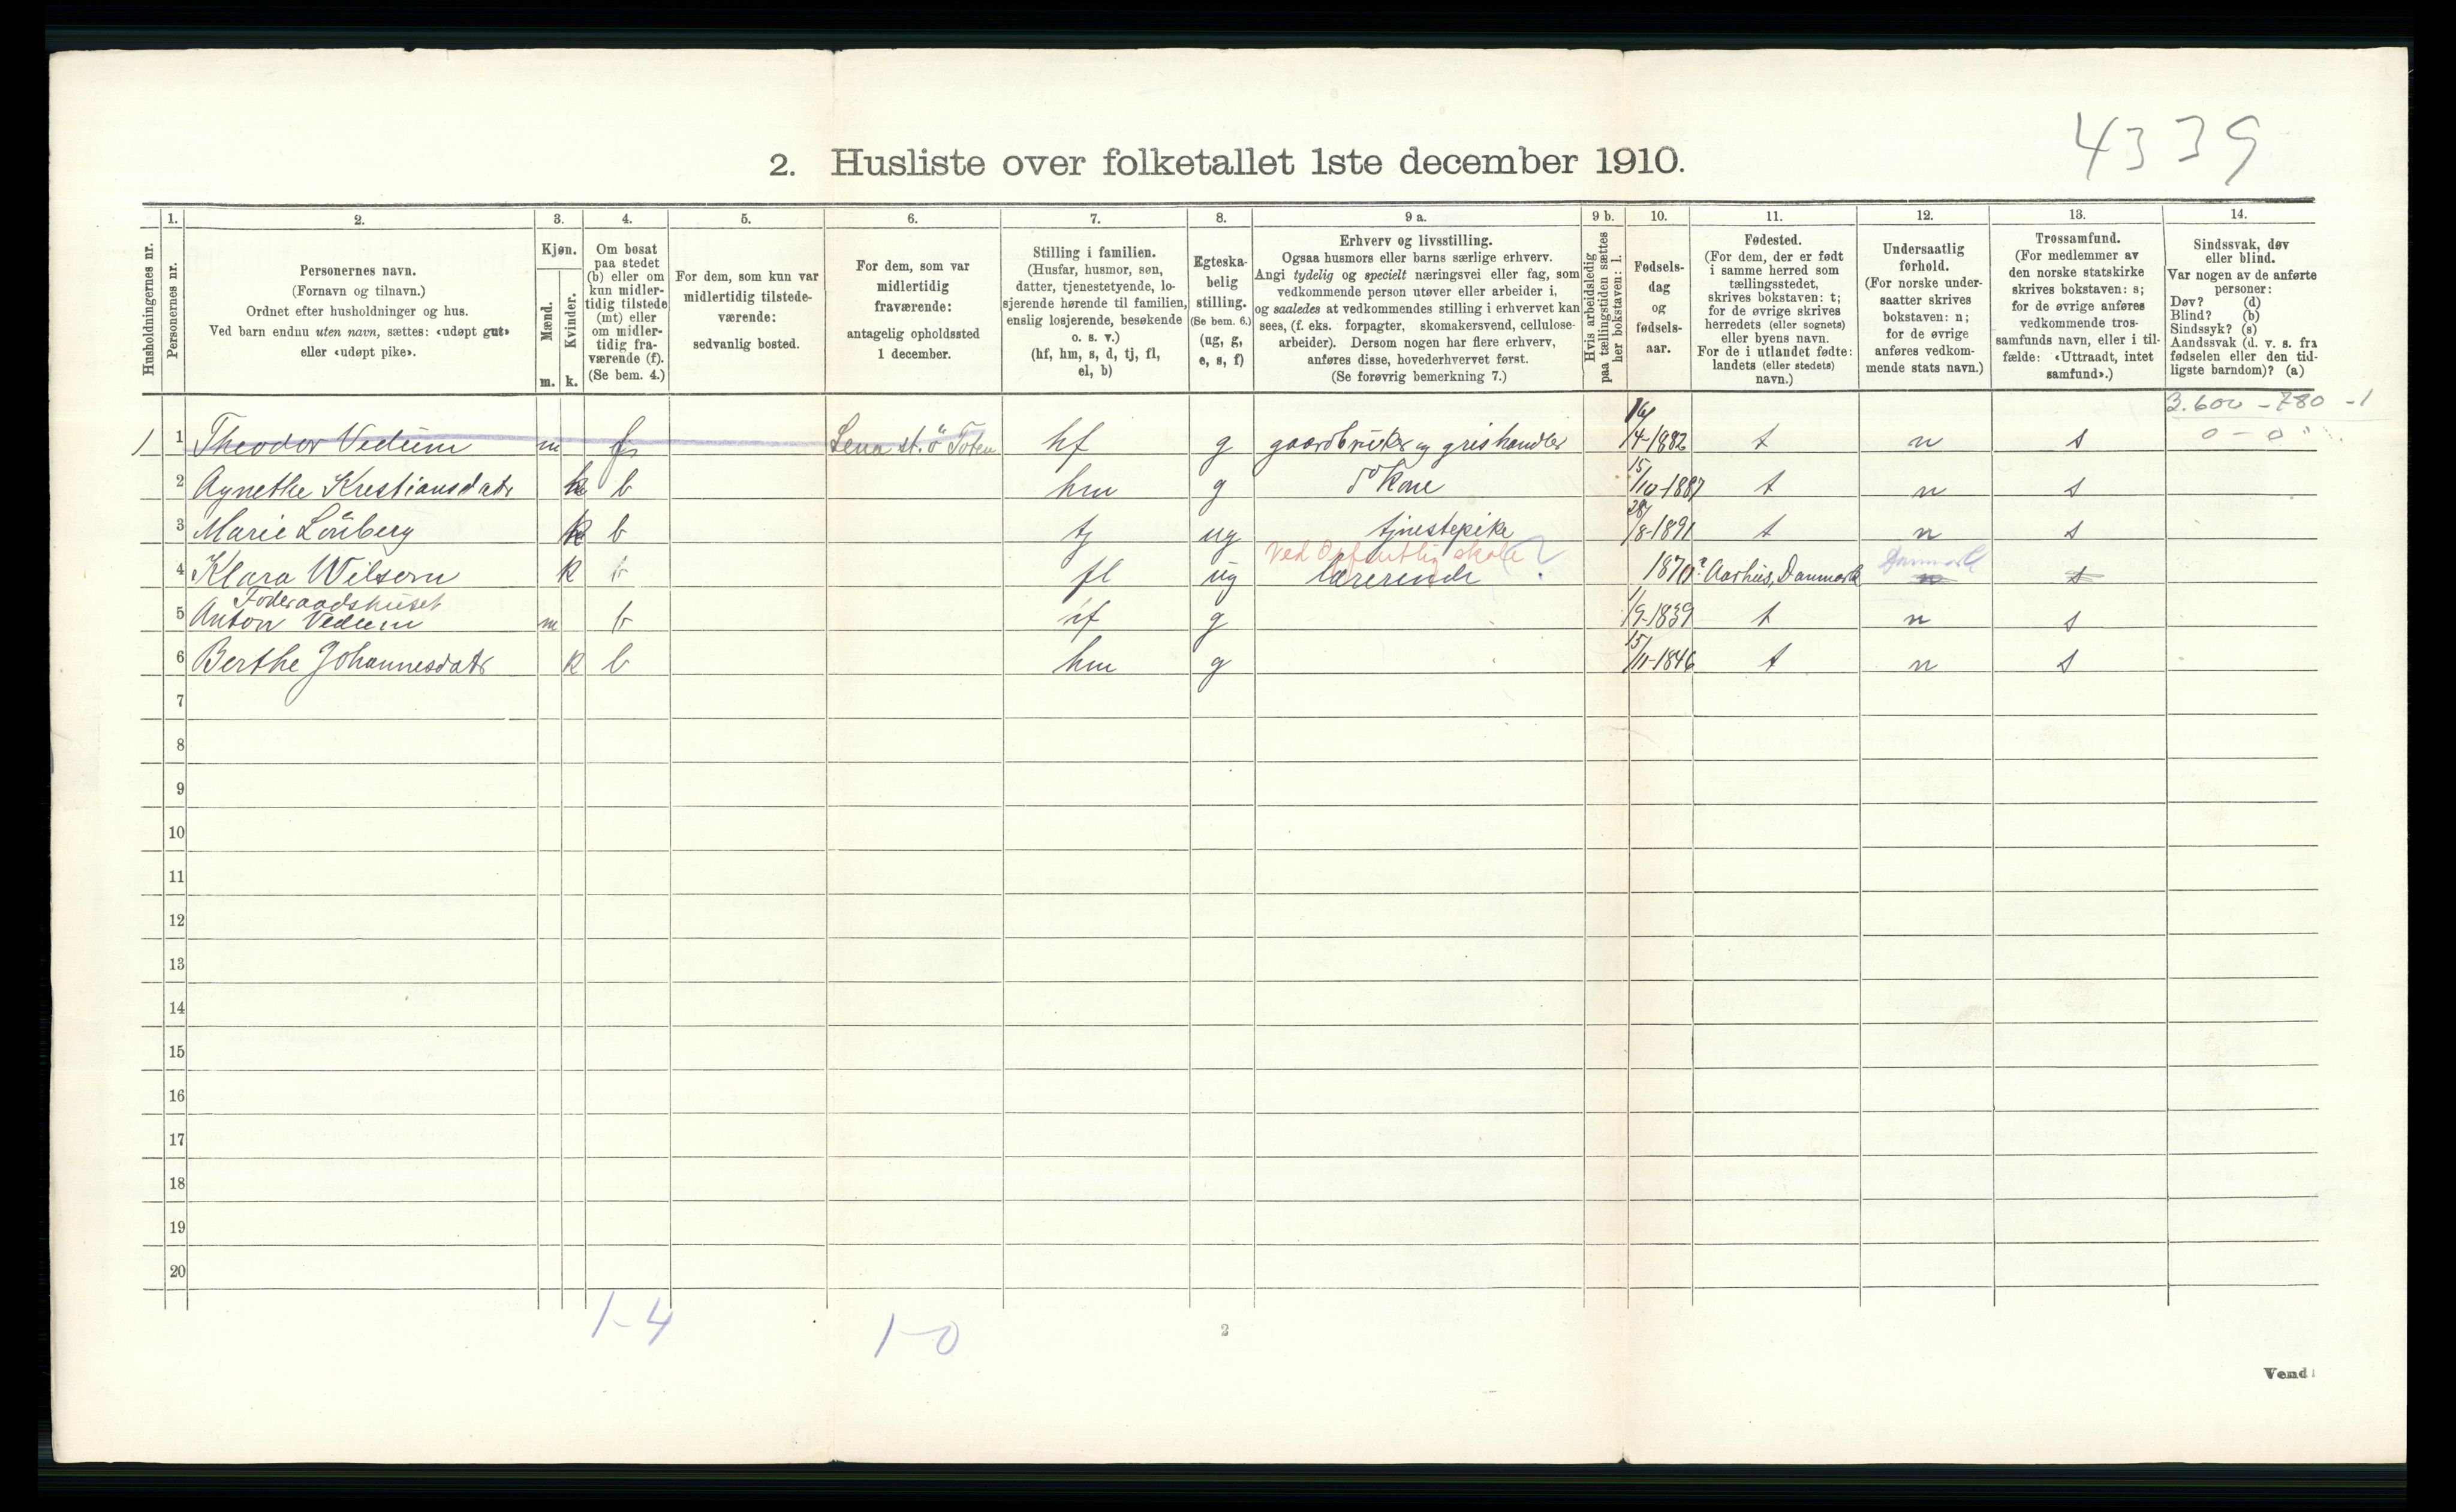 4339
2. Husliste over folketallet 1ste december 1910.
1. 2. 3. 4. 5. 6. 7. 8. 9 a. 9 b. 10. 11. 12. 13. 14.
Husholdningernes nr.
Personernes nr.
Personernes navn.
(Fornavn og tilnavn.)
Ordnet efter husholdninger og hus.
Ved barn endnu uten navn, sættes: «udøpt gut»
eller «udøpt pike».
Kjøn.
Mænd.
Kvinder.
m. k.
Om bosat
paa stedet
(b) eller om
kun midler-
tidig tilstede
(mt) eller
om midler-
tidig fra-
værende (f).
(Se bem. 4.)
For dem, som kun var
midlertidig tilstede-
værende:
sedvanlig bosted.
For dem, som var
midlertidig
fraværende:
antagelig opholdssted
1 december.
Stilling i familien.
(Husfar, husmor, søn,
datter, tjenestetyende, lo-
sjerende hørende til familien,
enslig losjerende, besøkende
o. s. v.)
(hf, hm, s, d, tj, fl,
el, b)
Egteska-
belig
stilling.
(Se bem. 6.)
(ug, g,
e, s, f)
Erhverv og livsstilling.
Ogsaa husmors eller barns særlige erhverv.
Angi tydelig og specielt næringsvei eller fag, som
vedkommende person utøver eller arbeider i,
og saaledes at vedkommendes stilling i erhvervet kan
sees, (f. eks. forpagter, skomakersvend, cellulose-
arbeider). Dersom nogen har flere erhverv,
anføres disse, hovederhvervet først.
(Se forøvrig bemerkning 7.)
Hvis arbeidsledig
paa tællingstiden sættes
her bokstaven: l.
Fødsels-
dag
og
fødsels-
aar.
Fødested.
(For dem, der er født
i samme herred som
tællingsstedet,
skrives bokstaven: t;
for de øvrige skrives
herredets (eller sognets)
eller byens navn.
For de i utlandet fødte:
landets (eller stedets)
navn.)
Undersaatlig
forhold.
(For norske under-
saatter skrives
bokstaven: n;
for de øvrige
anføres vedkom-
mende stats navn.)
Trossamfund.
(For medlemmer av
den norske statskirke
skrives bokstaven: s;
for de øvrige anføres
vedkommende tros-
samfunds navn, eller i til-
fælde: «Uttraadt, intet
samfund».)
Sindssvak, døv
eller blind.
Var nogen av de anførte
personer:
Døv? (d)
Blind? (b)
Sindssyk? (s)
Aandssvak (d. v. s. fra
fødselen eller den tid-
ligste barndom)? (a)
3.600 - 780 - 1
0 - 0
1 1 Theodor Vedum m f Lena st. ö Toten hf g gaardbruker og grishandler 16/4-1882 t n s
2 Agnethe Kristiansdatr k b hm g do Kone 15/10-1887 t n s
3 Marie Lönberg k b tj ug tjnestepike 28/8-1891 t n s
Ved Offentlig skole ?
4 Klara Wilsern k b fl ug lærerinde 1870? Aarhus, Danmark n Danmark s
Föderaadshuset
5 Anton Vedum m b hf g 11/9-1839 t n s
6 Berthe Johannesdatr k b hm g 15/11-1846 t n s
7
8
9
10
11
12
13
14
15
16
17
18
19
20
1-4
1-0
2
Vend